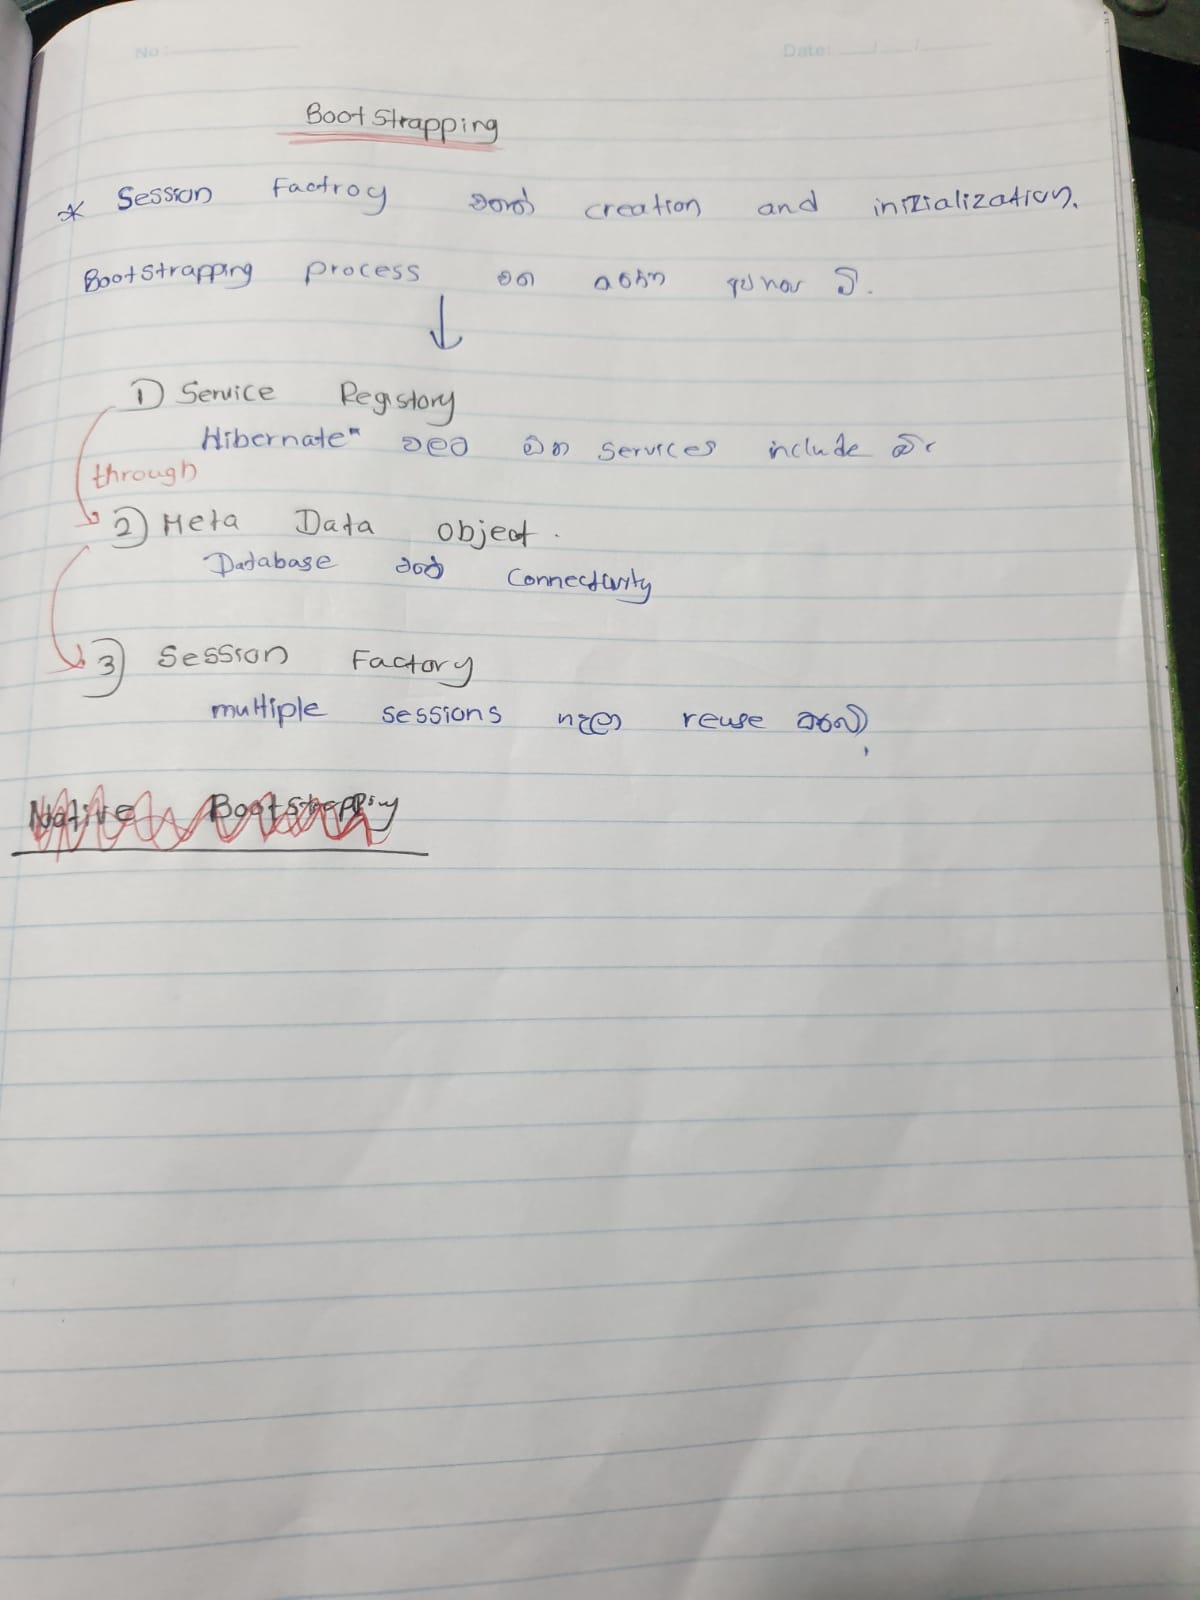 No:
Date:
Boot Strapping
* Session Factroy එකක් creation and initialization.
BootStrapping process එක
1) Service Registory
Hibernate" වලට ඕන services include
through
2) Meta Data Object.
Database එකේ Connectivity
3) Session Factory
multiple sessions හදලා reuse කරේ
Native BootStrapping